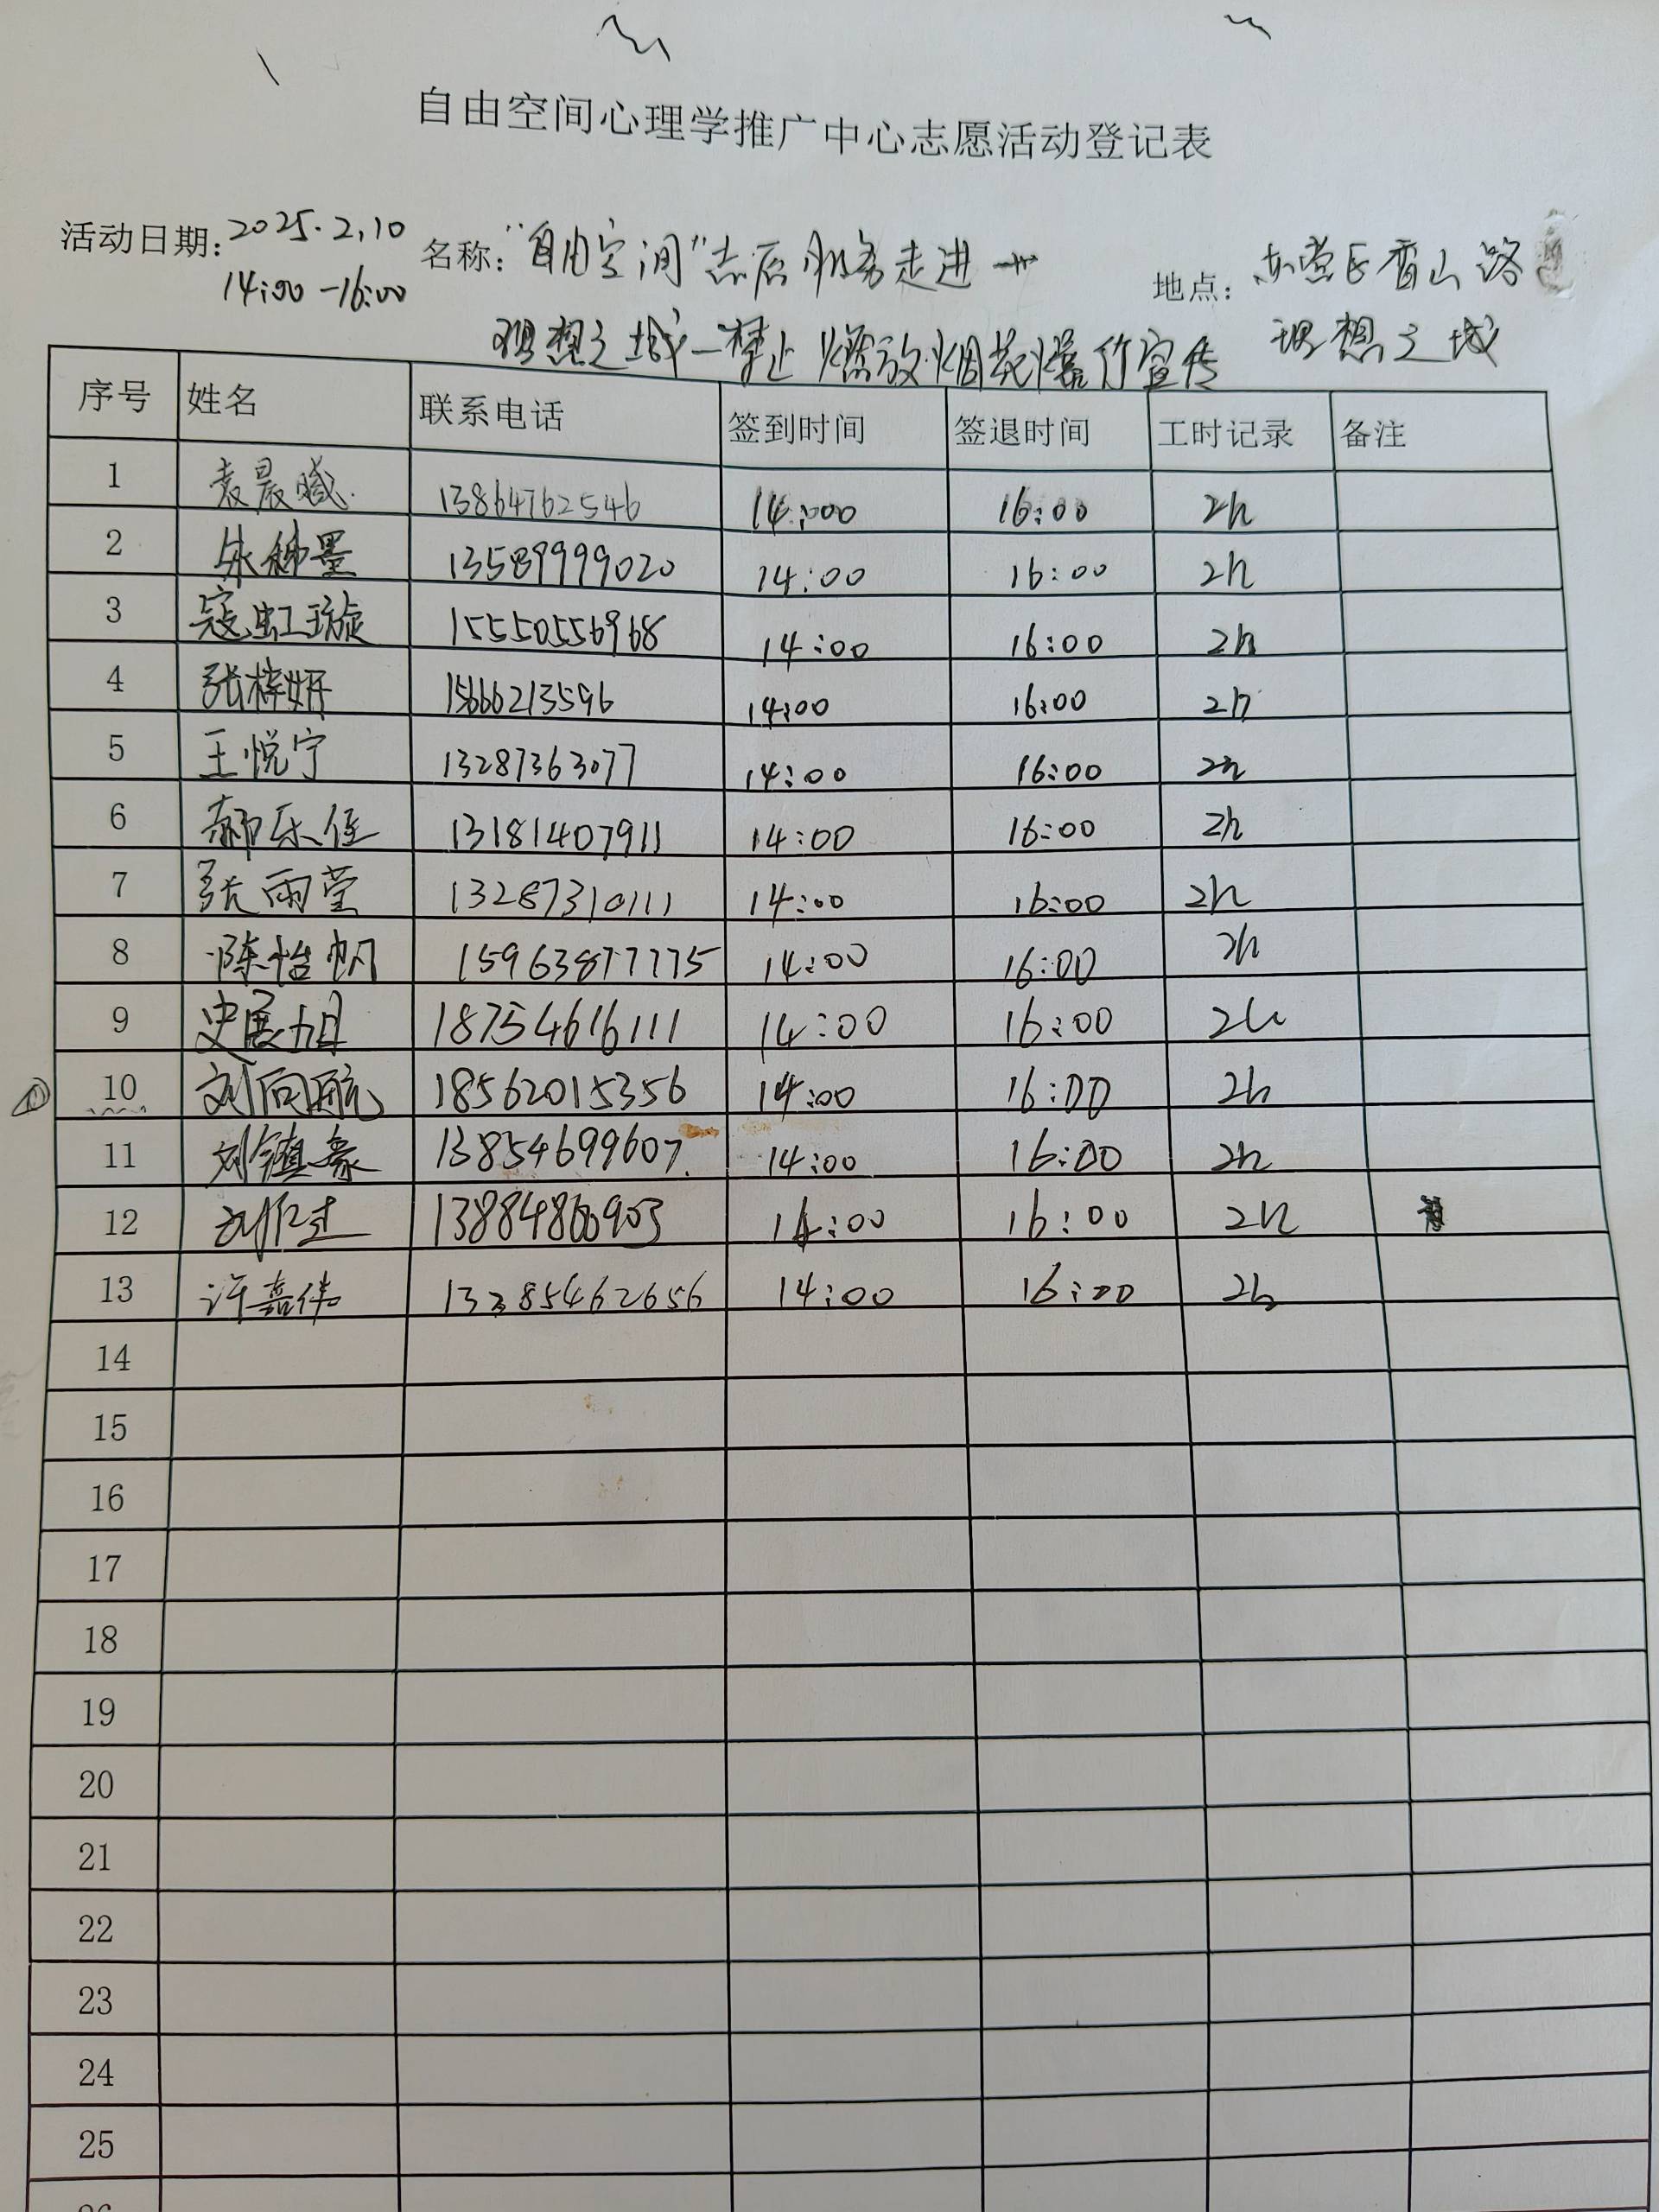 自由空间心理学推广中心志愿活动登记表
活动日期: 2025.2.10 名称: "自由空间"志愿服务走进 地点: 东营区香山路
14:00-16:00
理想之城—禁止燃放烟花爆竹宣传 理想之城
序号 姓名 联系电话 签到时间 签退时间 工时记录 备注
1 袁晨曦 13864762546 14:000 16:00 2h
2 13589999020 14:00 16:00 2h
3 寇虹璇 15550556968 14:00 16:00 2h
4 张梓妍 15666213596 14:00 16:00 2h
5 王悦宁 13287363077 14:00 16:00 2h
6 郝乐佳 13181407911 14:00 16:00 2h
7 张雨莹 13287310111 14:00 16:00 2h
8 陈怡帆 15963877775 14:00 16:00 2h
9 史展旭 18754616111 14:00 16:00 2h
10 刘向航 18562015356 14:00 16:00 2h
11 刘镇豪 13854699607 14:00 16:00 2h
12 14:00 16:00 2h
13 许嘉伟 14:00 16:00 2h
14
15
16
17
18
19
20
21
22
23
24
25